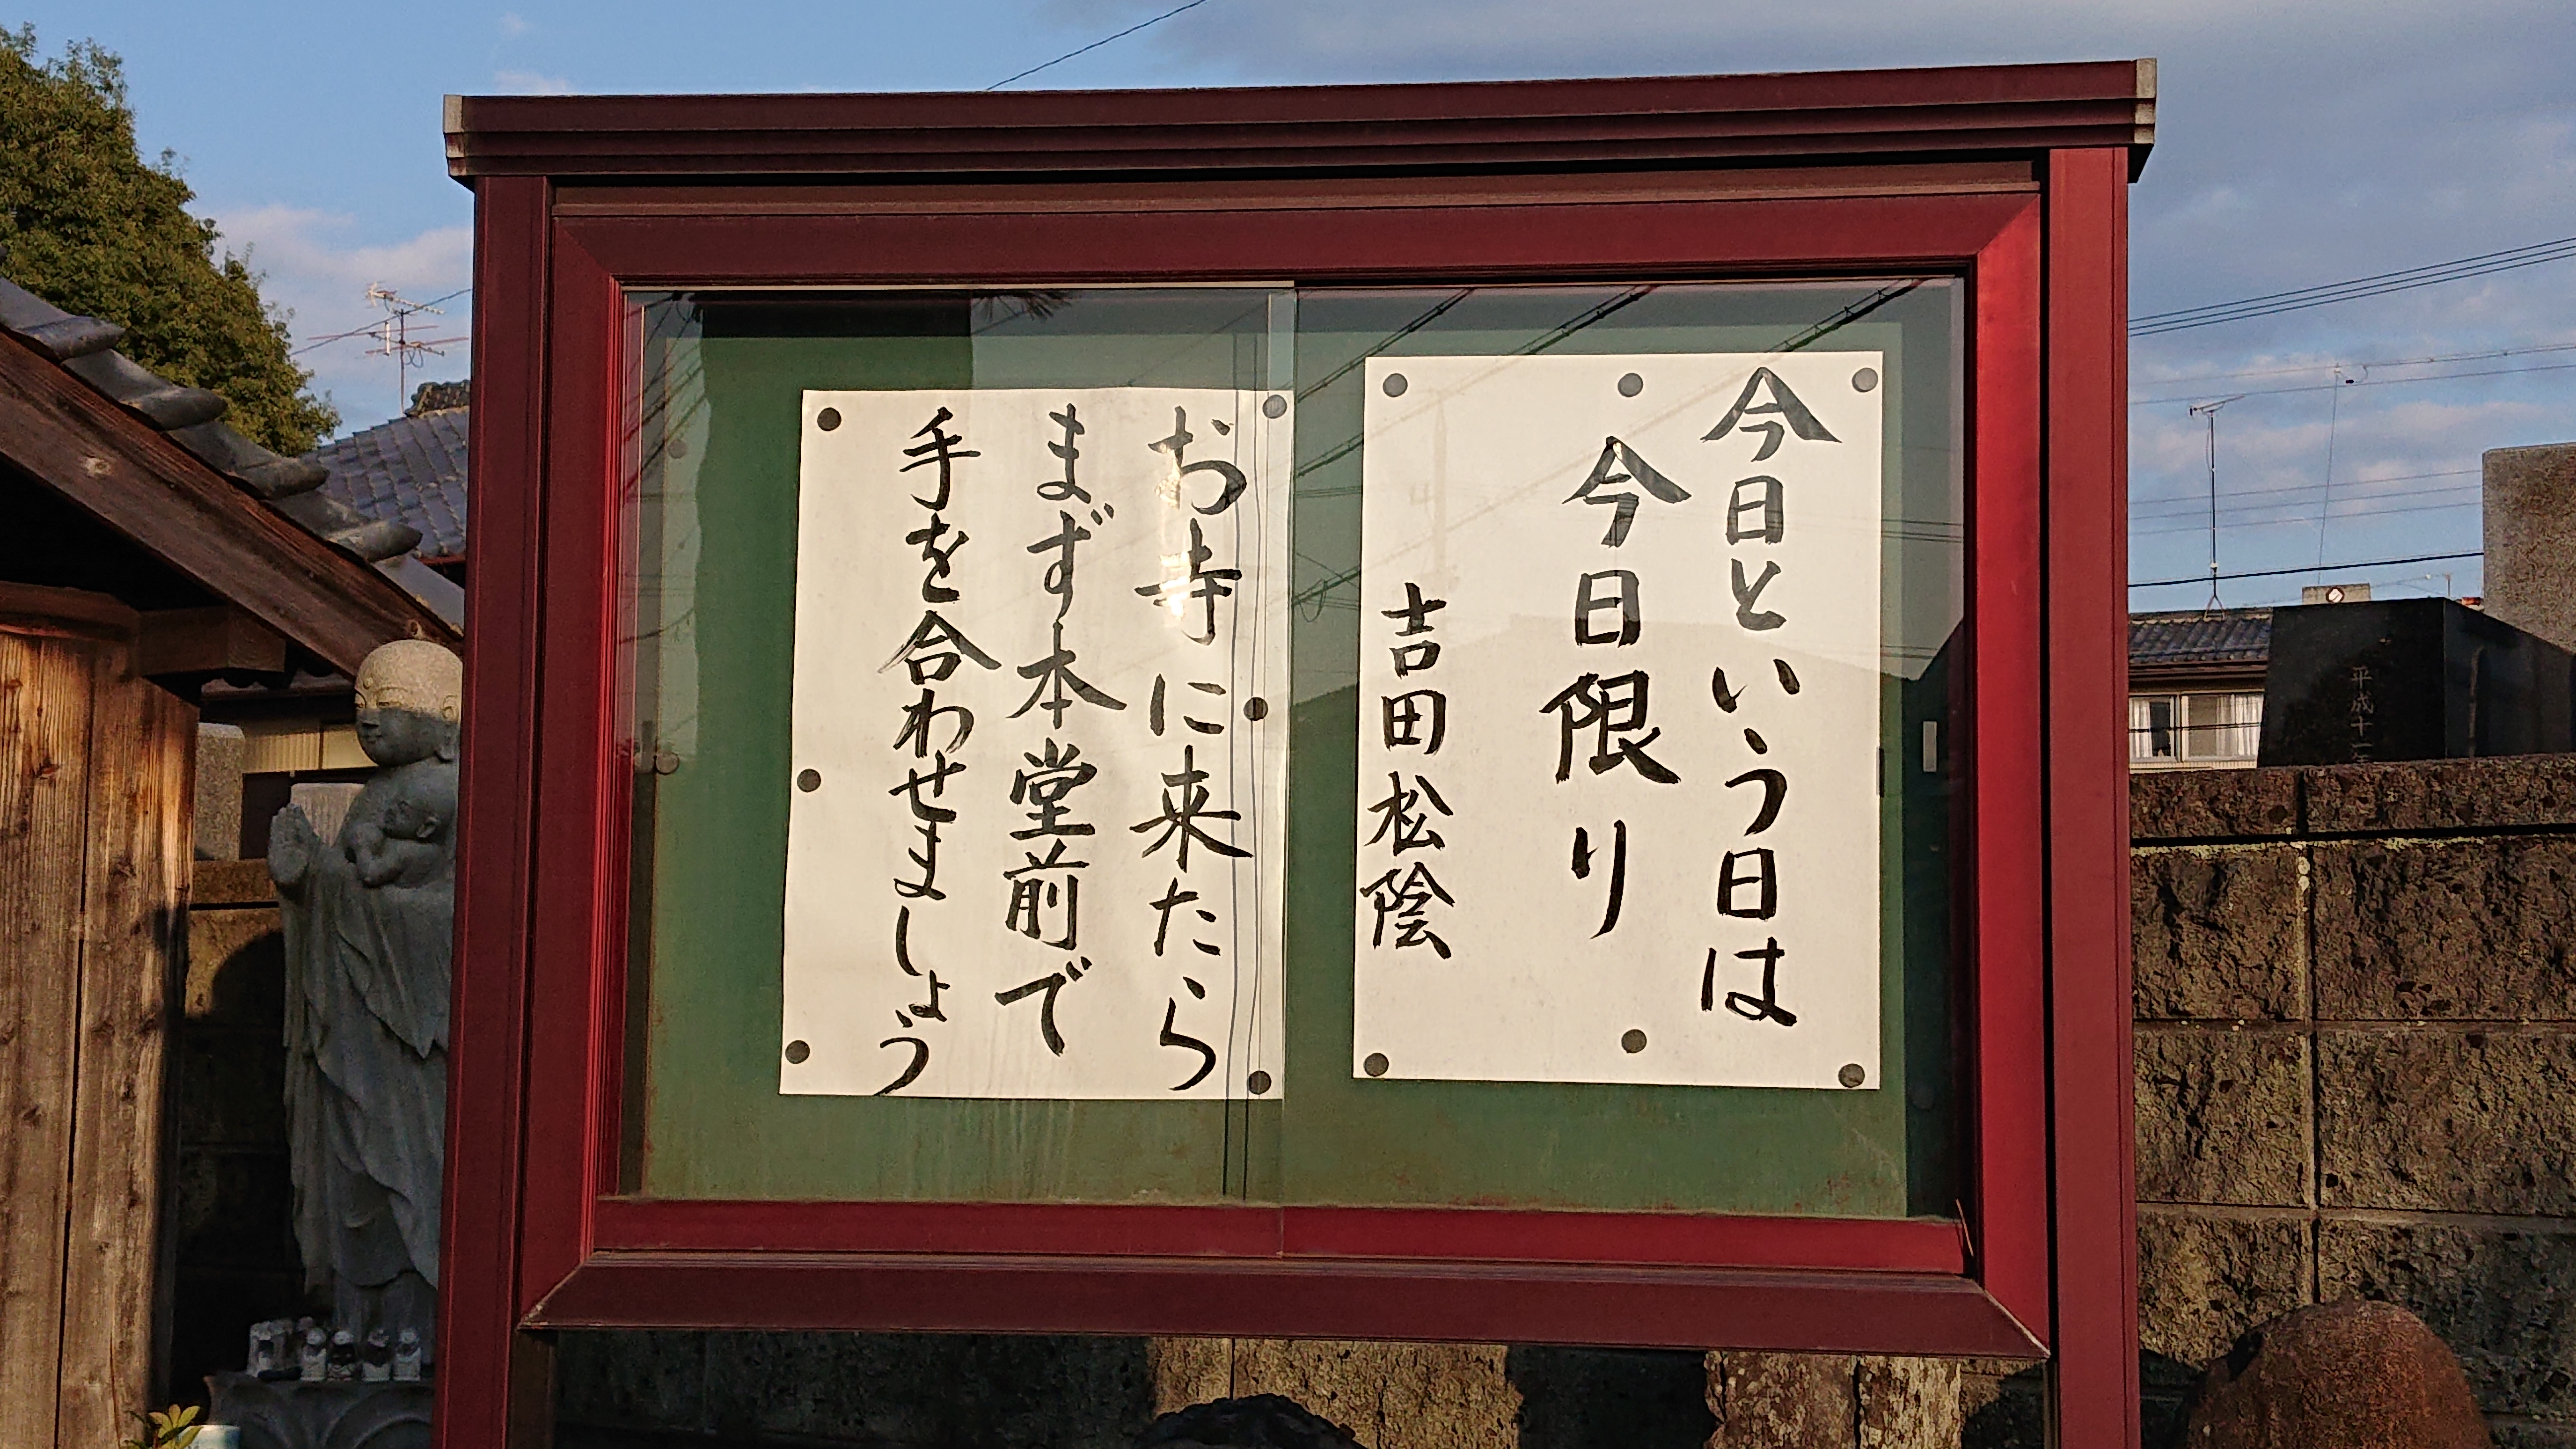 今日という日は
今日限り
吉田松陰
お寺に来たら
まず本堂前で
手を合わせましょう
平成十